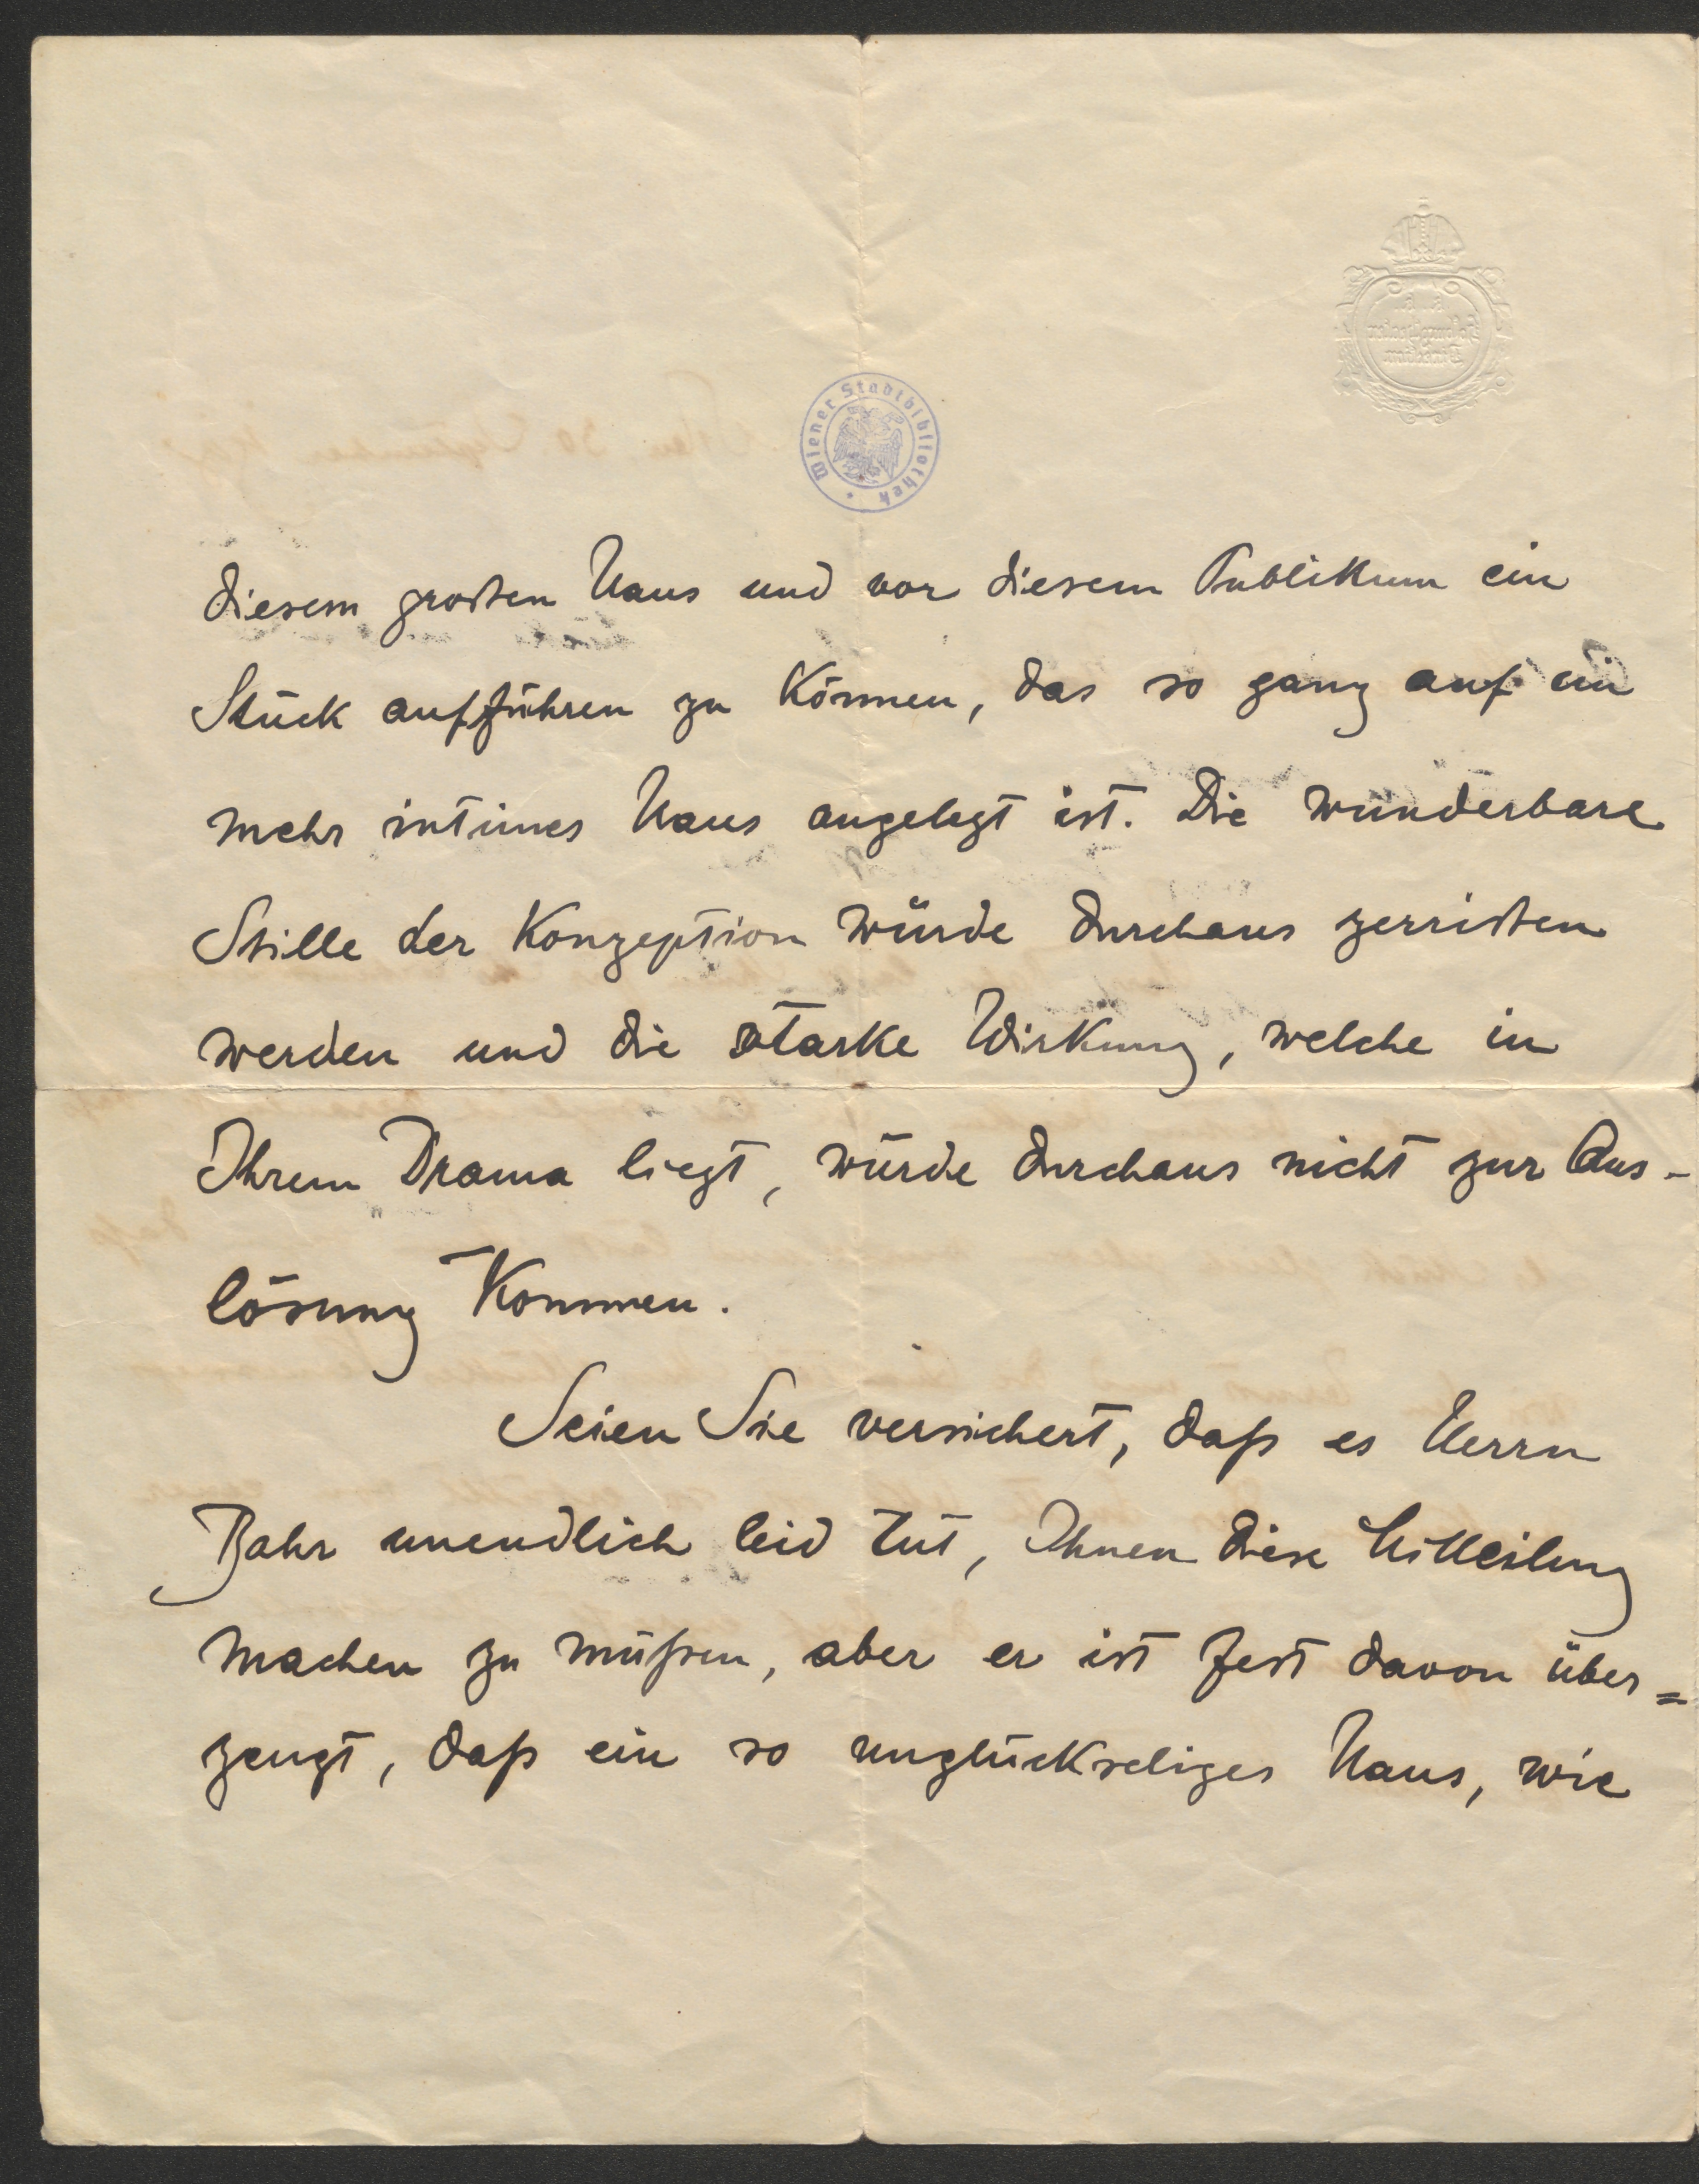 Wiener Stadtbibliothek
diesem großen Haus und vor diesem Publikum ein
Stück aufführen zu können, das so ganz auf ein
mehr intimes Haus angelegt ist. Die wunderbare
Stille der Konzeption würde durchaus zerrissen
werden und die starke Wirkung, welche in
Ihrem Drama liegt, würde durchaus nicht zur Aus-
lösung kommen.
Seien Sie versichert, daß es Herrn
Bahr unendlich leid tut, Ihnen diese Mitteilung
machen zu müßen, aber er ist fest davon über=
zeugt, daß ein so unglückseliges Haus, wie